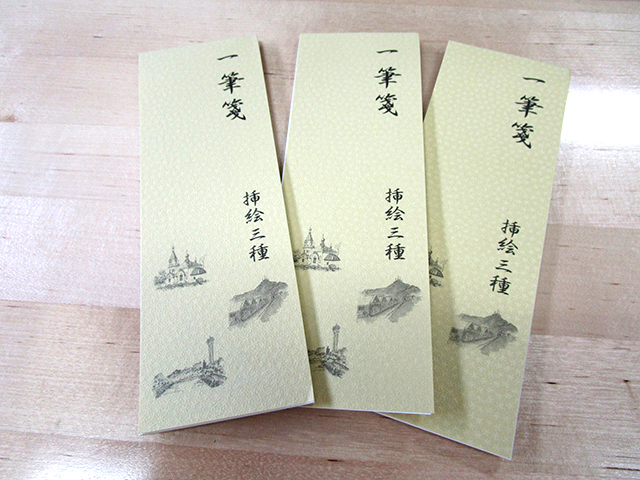 一筆箋
挿絵三種
一筆箋
挿絵三種
一筆箋
挿絵三種